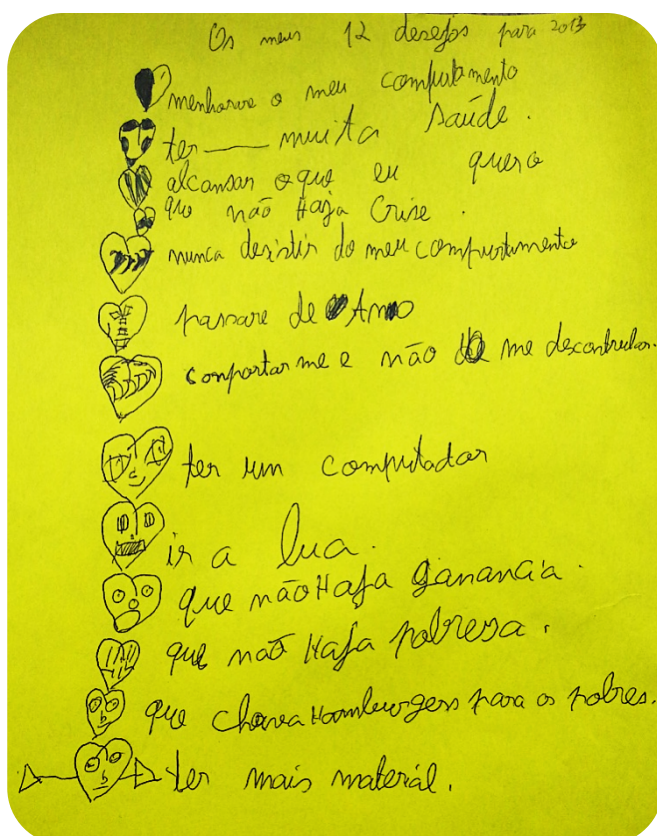 Os meus 12 desejos para 2013
menhorare o meu comportamento
ter muita saúde.
alcansar o que eu quero
que não Haja Crise.
nunca desistir do meu comportamento
passare de Ano
comportar me e não me descontrolar.
ter um computador
ir a lua.
que não Haja ganancia.
que não Haja pobresa.
que chova Hamburgers para os pobres.
ter mais material.